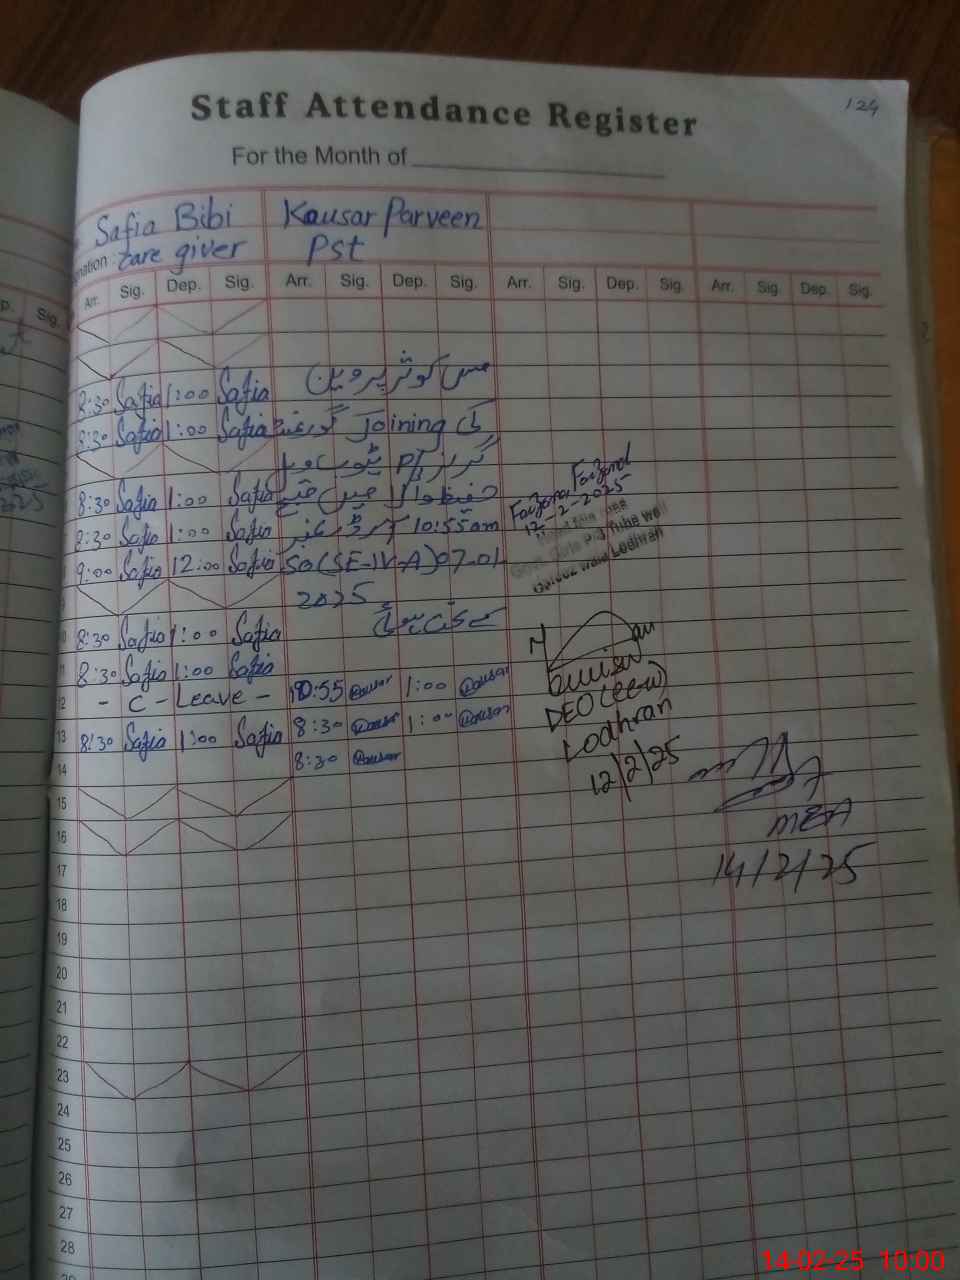 124
Staff Attendance Register
For the Month of
Safia Bibi Kausar Parveen
care giver Pst
Arr. Sig. Dep. Sig. Arr. Sig. Dep. Sig. Arr. Sig. Dep. Sig. Arr. Sig. Dep. Sig.
8:30 Safia 1:00 Safia مس کوثر پروین
8:30 Safia 1:00 Safia کی Joining گورنمنٹ
گرلز P/S ٹیوب ویل
8:30 Safia 1:00 Safia
8:30 Safia 1:00 Safia آرڈر نمبر 10:55am
9:00 Safia 12:00 Safia SO(SE-IV-A)07-01
2025
کے تحت ہوئی
12-2-2025
Tube well
Lodhran
10 8:30 Safia 1:00 Safia
11 8:30 Safia 1:00 Safia
12 - C - Leave - 10:55 Kausar 1:00 Kausar
13 8:30 Safia 1:00 Safia 8:30 Kausar 1:00 Kausar
14 8:30 Kausar
DEO (EE-W)
Lodhran
12/2/25
MEA
14/2/25
15
16
17
18
19
20
21
22
23
24
25
26
27
28
14-02-25 10:00